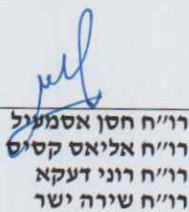 רו״ח חסן אסמעיל
רו״ח אליאס קסיס
רו״ח רוני דעקא
רו״ח שירה ישר